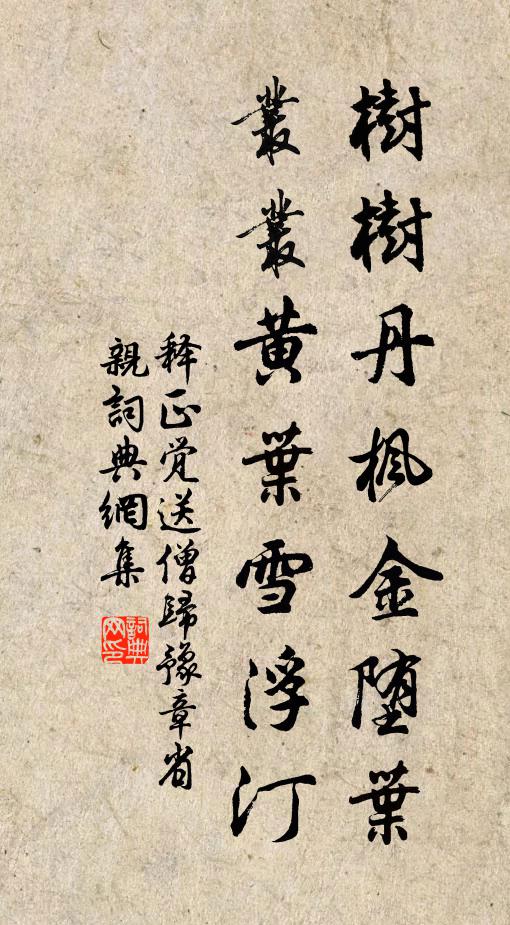 樹樹丹楓金堕葉
叢叢黄葉雪浮汀
释正覚送僧歸豫章省
親詞典網集
詞典
网印